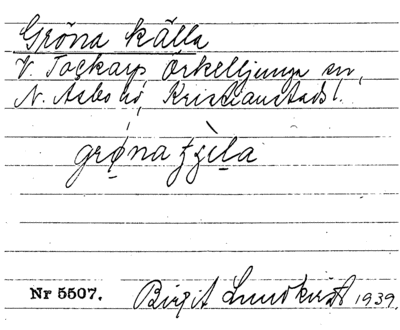 Gröna källa
V. Tockarp Örkelljunga sn,
N. Åsbo hd, Kristianstads l.
grøna
Nr 5507. Birgit Lundkvist 1939.